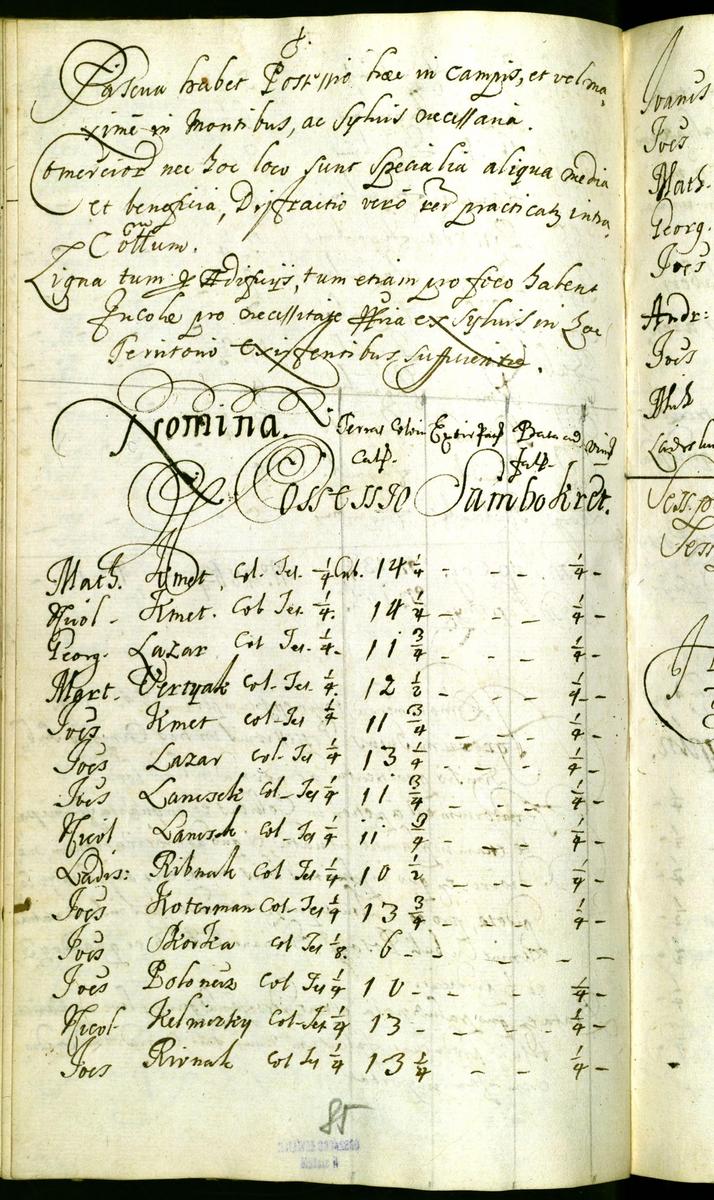 Pascua habet Possessio hæc in Campis, et vel ma-
ximè in Montibus, ac Sylvis necessaria.
Comercior nec hoc loco sunt Specialia aliqua media
et beneficia, Distractio verò rer practicat intra
Cottum.
Ligna tum Ædificijs, tum etiam pro foco habent
Incolæ pro necessitate ex Sylvis in hoc
Territorio existentibus sufficientia.
Nomina. Terras Colon
Possessio Sambokrét.
Math. Kmet. Col. Ses. 1/4 Cub. 14 1/4 - - - 1/4 -
Nicol - Kmet. Col Ses. 1/4. 14 1/4 - - - 1/4 -
Georg. Lazar Col Ses. 1/4. 11 3/4 - - - 1/4 -
Mart. Vertyak Col. Ses. 1/4. 12 1/2 - - - 1/4 -
Joes Kmet Col-Ses 1/4 11 3/4 - - - 1/4 -
Joes Lazar Col-Ses 1/4 13 1/4 - - - 1/4 -
Joes Lancsek Col-Ses 1/4 11 3/4 - - - 1/4 -
Nicol Lancsek Col-Ses 1/4 11 3/4 - - - 1/4 -
Ladis: Ribnak Col Ses 1/4 10 1/2 - - - 1/4 -
Joes Koterman Col-Ses 1/4 13 3/4 - - - 1/4 -
Joes Skorka Col Ses 1/8. 6 - - - - -
Joes Polonecz Col Ses 1/4 10 - - - 1/4 -
Nicol- Kelniczky Col-Ses 1/4 13 - - - 1/4 -
Joes Rivnak Col Ses 1/4 13 1/4 - - - 1/4 -
85
Joes
Math.
Georg.
Joes
Andr:
Joes